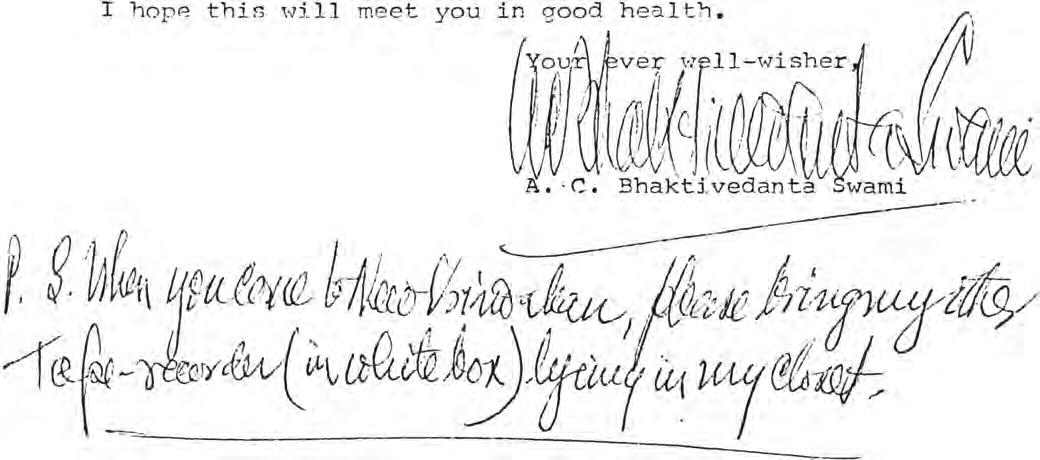 I hope this will meet you in good health.
Your ever well-wisher,
ACBhaktivedanta Swami
A. C. Bhaktivedanta Swami
P. S. When you come to New Vrindaban, please bring my other
Tape-recorder (in white box) lying in my closet.